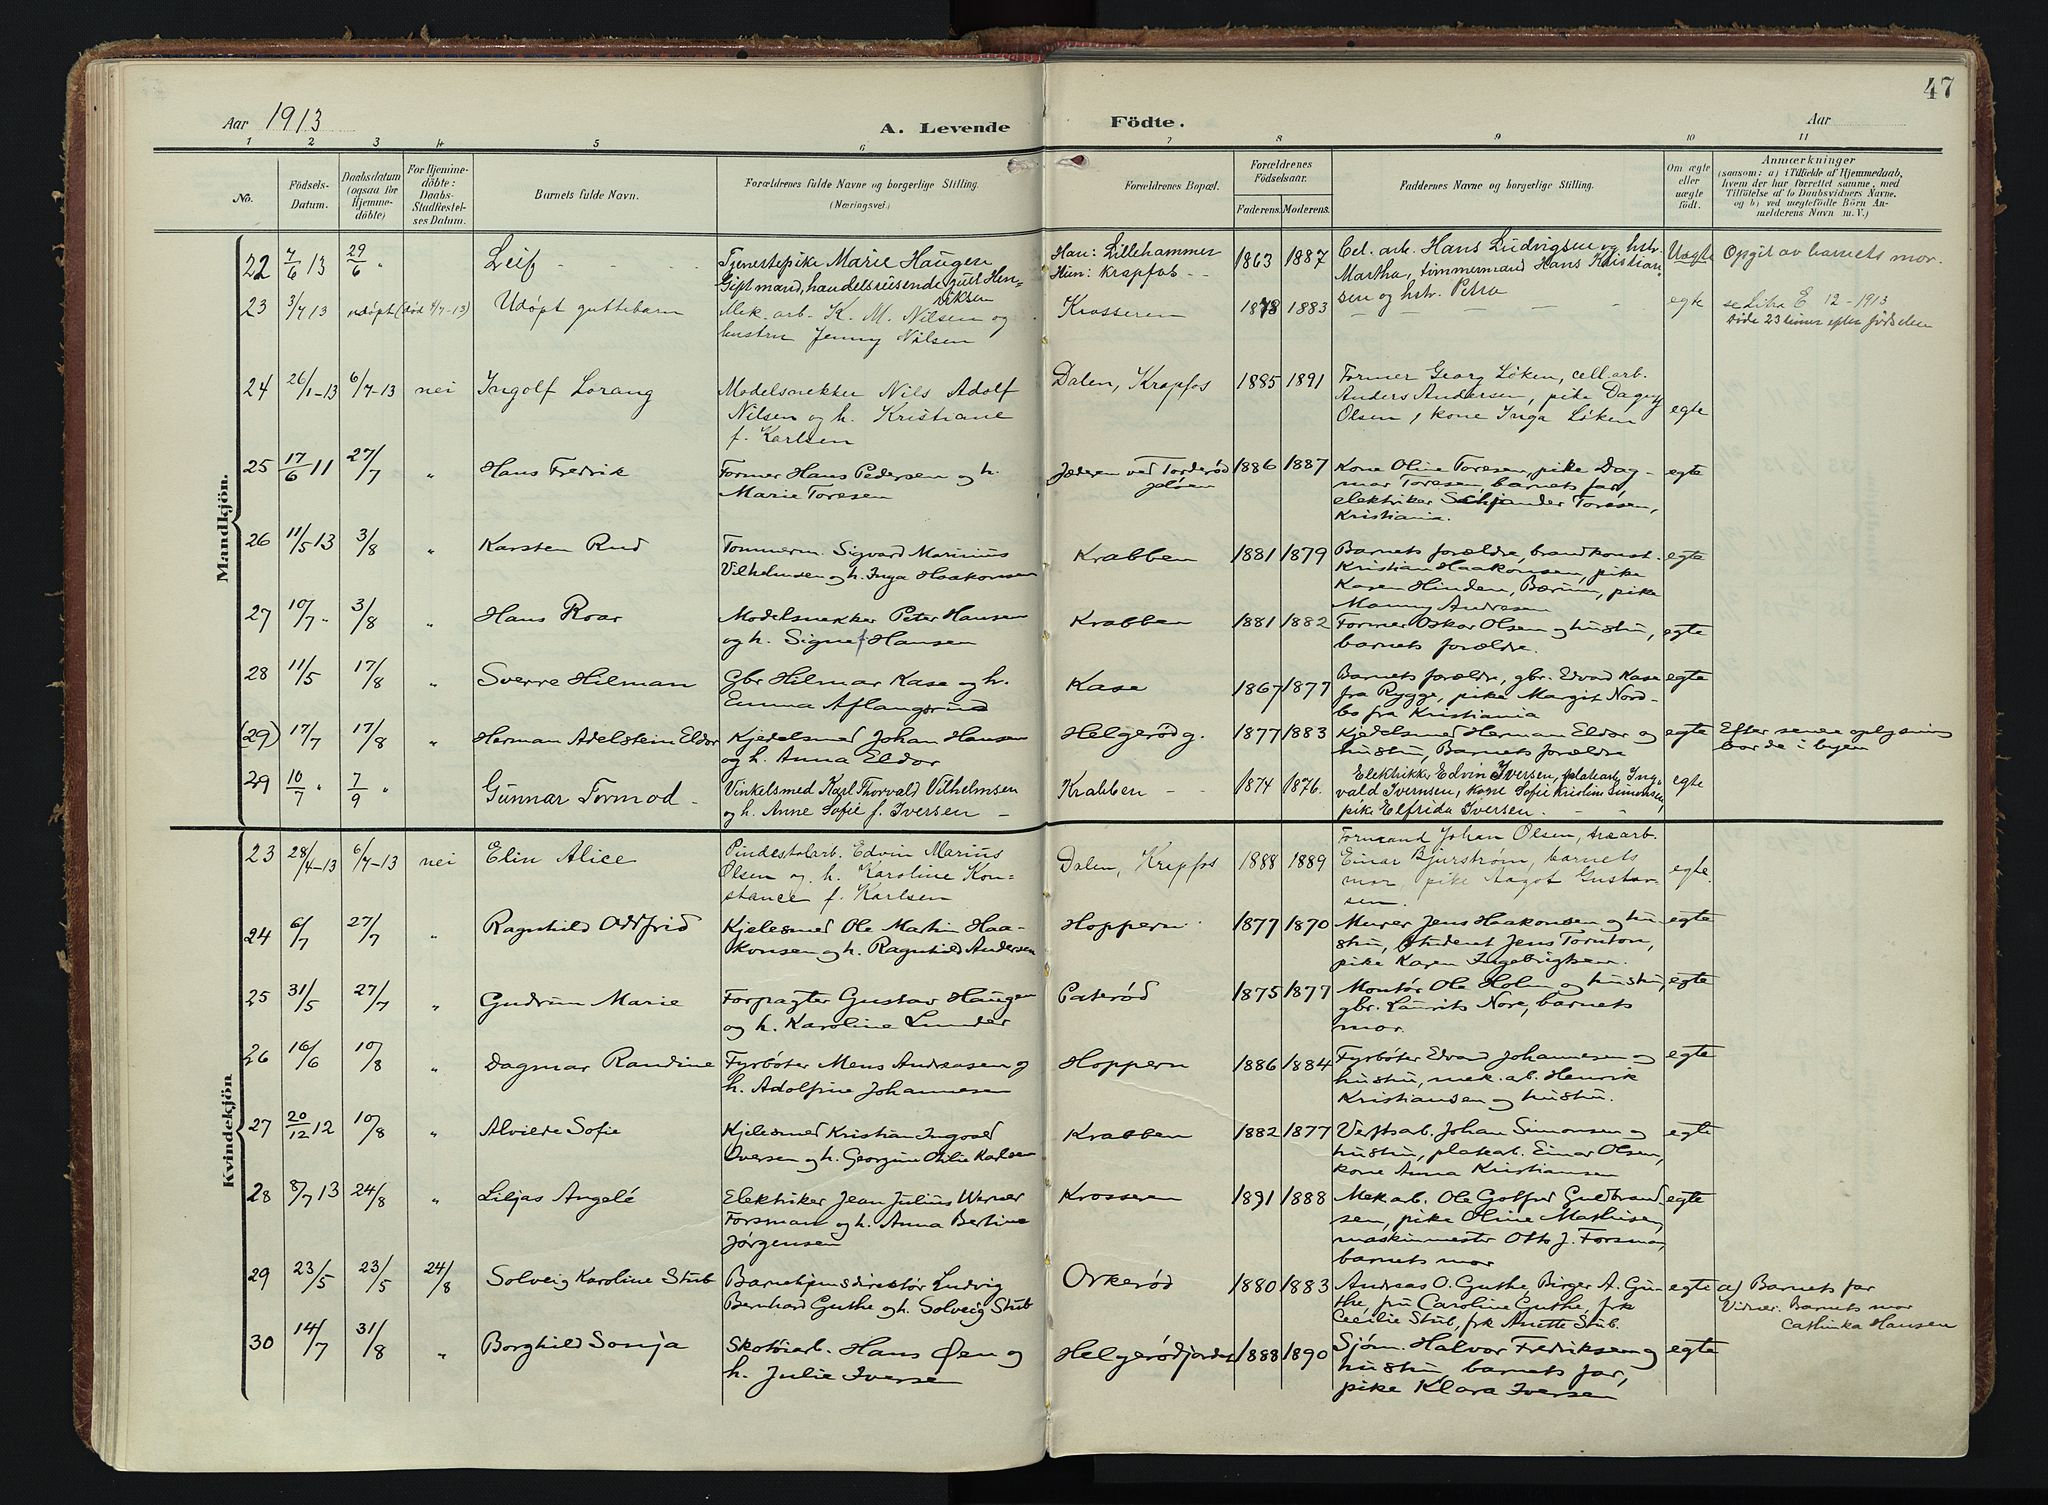 47
Aar 1913
A. Levende Födte.
Aar
1 2 3 4 5 6 7 8 9 10 11
No.
Födsels-
Datum.
Daabsdatum
(ogsaa for
Hjemme-
döbte)
For Hjemme-
döbte:
Daabs-
Stadfæstel-
ses Datum.
Barnets fulde Navn.
Forældrenes fulde Navne og borgerlige Stilling.
(Næringsvei.)
Forældrenes Bopæl.
Forældrenes
Födselsaar.
Faderens. Moderens.
Faddernes Navne og borgerlige Stilling.
Om ægte
eller
uægte
födt.
Anmærkninger
(saasom: a) i Tilfælde af Hjemmedaab,
hvem der har forrettet samme, med
Tilföielse af to Daabsvidners Navne,
og b) ved uægtefödte Börn An-
melderens Navn m. V.)
Mandkjön.
22 7/6 13 29/6 " Leif - - - -
Tjenestepike Marie Haugen
Gift mand, handelsreisende Hen-
riksen
Han: Lillehammer
Hun: Krapfos - -
1863 1887
Cel. arb. Hans Ludvigsen og hstr.
Martha, timmermand Hans Kristian-
sen og hstr. Petra
Uægte Opgit av barnets mor.
23 3/7 13 udøpt (død 4/7-13) Udøpt guttebarn
Mek. arb. K. M. Nilsen og
hustru Jenny Nilsen
Krosseren 1878 1883 — — — —
egte se Litra E 12-1913
Døde 23 timer efter fødselen
24 26/1-13 6/7-13 nei Ingolf Lorang
Modelsnekker Nils Adolf
Nilsen og h. Kristiane
f. Karlsen
Dalen, Krapfos 1885 1891
Former Georg Løken, cell. arb.
Anders Andersen, pike Dagny
Olsen, kone Inga Løken
egte
25 17/6 11 27/7 " Hans Fredrik
Former Hans Pedersen og h.
Marie Toresen
Jæderen ved Torderød
Jeløen
1886 1887
Kone Oline Toresen, pike Dag-
mar Toresen, barnets far,
elektriker Toresen,
Kristiania.
egte
26 11/5 13 3/8 " Karsten Rud
Tommerm. Sigvard Marinius
Vilhelmsen og h. Inga Haakonsen
Krabben 1881 1879
Barnets forældre, brandkonst.
Kristian Haakonsen, pike
Karen Hinden, Bærum, pike
Manny Andresen
egte
27 10/7 " 3/8 " Hans Roar
Modelsnekker Peter Hansen
og h. Signe f. Hansen
Krabben 1881 1882
Former Oskar Olsen og hustru,
barnets forældre.
egte
28 11/5 17/8 " Sverre Hilman
Gbr Hilmar Kase og h.
Emma Aflangsrud
Kase 1867 1877
Barnets forældre, gbr. Edvard Kase
fra Rygge, pike Margit Nord-
bo fra Kristiania
egte
(29) 17/7 17/8 " Herman Adelstein Eldor
Kjedelsmed Johan Hansen
og h. Anna Eldor
Helgerød g. 1877 1883
Kjedelsmed Herman Eldor og
hustru, Barnets forældre
egte Efter senere oplysning
bor de i byen
29 10/7 " 7/9 " Gunnar Tormod -
Vinkelsmed Karl Thorvald Vilhelmsen
og h. Anne Sofie f. Iversen -
Krabben - - 1874 1876.
Elektrikker Edvin Iversen, platearb. Ing-
vald Ivernsen, kone Sofie Kristine Simonsen,
pike Elfrida Iversen. -
egte
Kvindekjön
23 28/4-13 6/7-13 nei Elin Alice
Pindestolarb. Edvin Marius
Olsen og h. Karoline Kon-
stance f. Karlsen
Dalen, Krapfos 1888 1889
Formand Johan Olsen, træarb.
Einar Bjurstrøm, barnets
mor, pike Aagot Gustav-
sen.
egte.
24 6/7 27/7 " Ragnhild Oddfrid
Kjelesmed Ole Martin Haa-
konsen og h. Ragnhild Andersen
Hoppern 1877 1870
Murer Jens Haakonsen og hu-
stru, student Jens Tornton,
pike Karen Ingebrigtsen.
egte
25 31/5 27/7 " Gudrun Marie
Forpagter Gustav Haugen
og h. Karoline Lunder
Paterød 1875 1877
Montør Ole Holm og hustru,
gbr. Laurits Nore, barnets
mor.
egte
26 16/6 10/8 " Dagmar Randine
Fyrbøter Mens Andreasen og
h. Adolfine Johannesen
Hoppern 1886 1884
Fyrbøter Edvard Johannesen og
hustru, mek. arb. Henrik
Kristiansen og hustru.
egte
27 20/12 12 10/8 " Alvilde Sofie
Kjelesmed Kristian Ingvald
Iversen og h. Georgine Otilie Karlsen
Krabben 1882 1877
Verftsarb. Johan Simonsen og
hustru, platearb. Einar Olsen,
kone Anna Kristiansen
egte
28 8/7 13 24/8 " Liljas Angelé
Elektriker Jean Julius Werner
Forsman og h. Anna Bertine
Jørgensen
Krosseren 1891 1888
Mek arb. Ole Gotfred Guldbrand-
sen, pike Oline Mathisen,
maskinmester Otto J. Forsman,
barnets mor
egte
29 23/5 23/5 24/8 Solveig Karoline Stub
Barnehjemsdirektør Ludvig
Bernhard Guthe og h. Solveig Stub
Orkerød 1880 1883
Andreas O. Guthe, Birger A. Gu-
the, fru Caroline Guthe, frk
Cecilie Stub, frk Anette Stub.
egte a) Barnets far
Vidner. Barnets mor
Cathinka Hansen
30 14/7 31/8 " Borghild Sonja
Skotøiarb. Hans Øen og
h. Julie Iversen
Helgerødjordet 1888 1890
Sjøm. Halvor Fredriksen og
hustru, barnets far,
pike Klara Iversen
egte